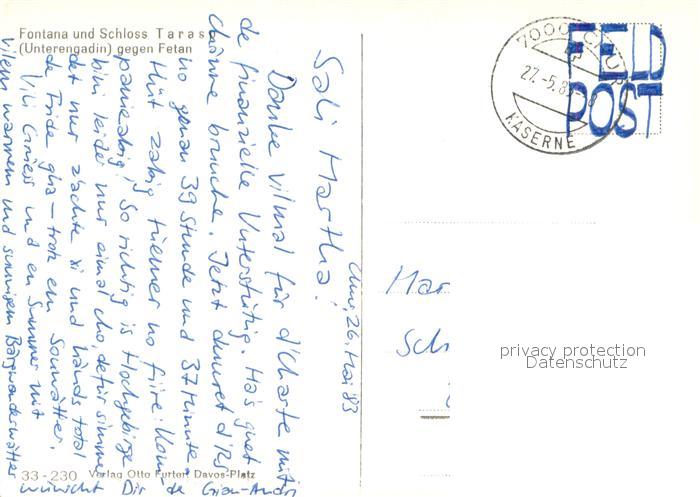 Fontana und Schloss Taras
(Unterengadin) gegen Fetan
7000 CHUR
27.-5.83-8
KASERNE
FELD
POST
Chur, 26. Mai 83
Sali Martha!
Danke vilmal für d'Charte mit
de finanzielle Unterstützig. Ha's guet
chönne bruuche. Jetzt duuret d'RS
no genau 39 Stunde und 37 Minute.
Hüt zabig müemer no füre! Kom-
panieabig! So richtig is Hochgebirge
bini leider nur eimal cho, defür simmer
det nur z'achte xi und händs total
de Fride gha – trotz em Sauwätter.
Vili Grüess und en Summer mit
vilem warmem und sunnigem Bärgwanderwätter
wünscht Dir de Gian-Andri
Mar
Sch
privacy protection
Datenschutz
33-230 Verlag Otto Furter, Davos-Platz